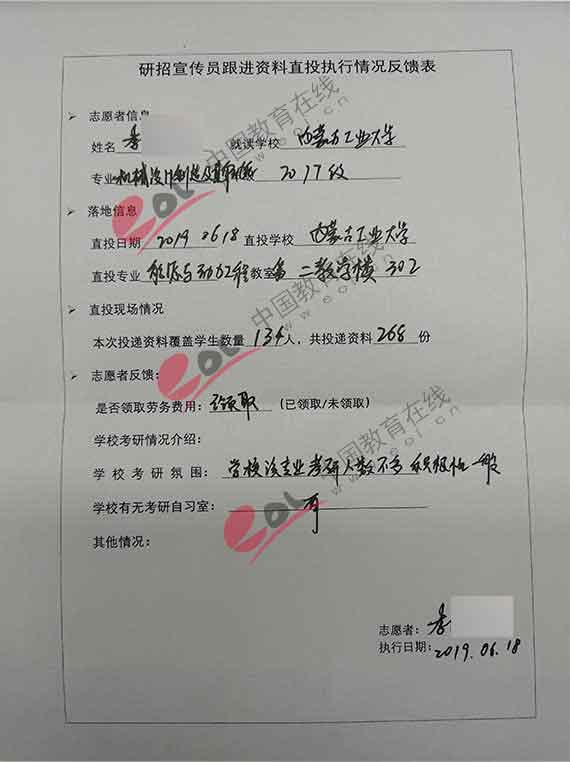 研招宣传员跟进资料直投执行情况反馈表
➢ 志愿者信息
姓名 李 就读学校 内蒙古工业大学
专业 机械设计制造及其自动化 2017级
➢ 落地信息
直投日期 2019 0618 直投学校 内蒙古工业大学
直投专业 能源与动力工程 教室 第二教学楼 302
➢ 直投现场情况
本次投递资料覆盖学生数量 134 人，共投递资料 268 份
➢ 志愿者反馈：
是否领取劳务费用： 领取 (已领取/未领取)
学校考研情况介绍：
学校考研氛围： 学校该专业考研人数不多 积极性一般
学校有无考研自习室： 有
其他情况：
志愿者： 李
执行日期： 2019.06.18
eol 中国教育在线
www.eol.cn
eol 中国教育在线
www.eol.cn
eol 中国教育在线
www.eol.cn